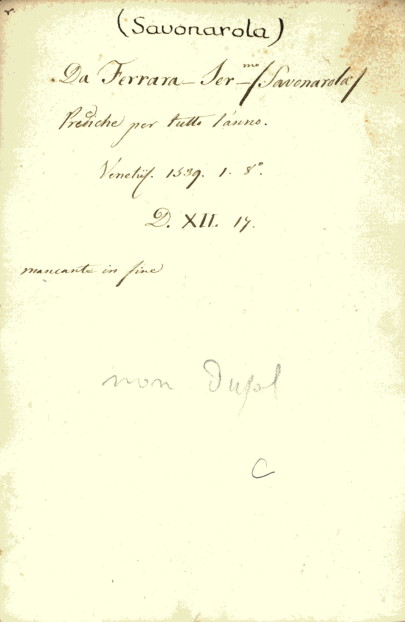 (Savonarola)
Da Ferrara - Ier-mo (Savonarola)
Prediche per tutto l'anno.
Venetijs. 1539. 1. 8°.
D. XII. 17.
mancante in fine
non Dupl
C